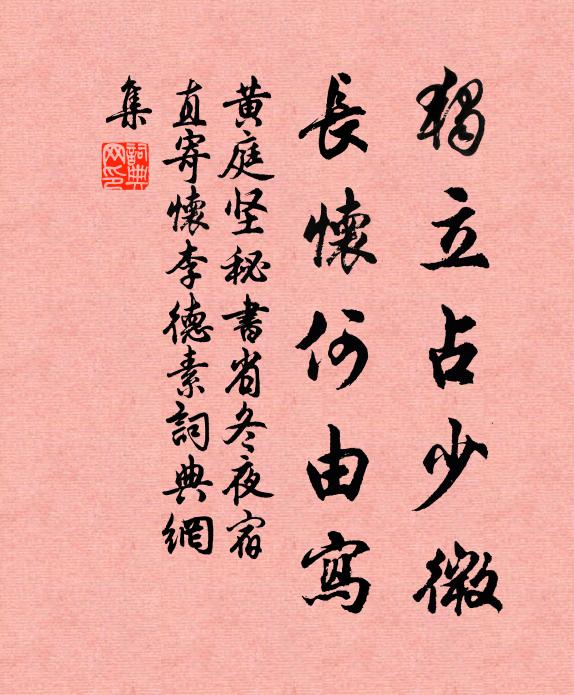 獨立占少微
長懷何由寫
黄庭坚秘書省冬夜宿
直寄懷李德素詞典網
集
詞典網印